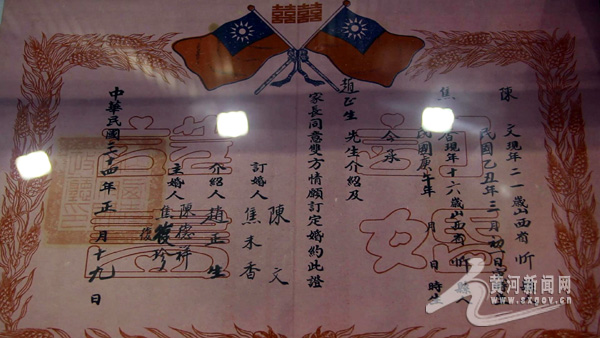 囍囍
陳 文 現年二一歲山西省忻
民國乙丑年三月初日
焦 現年十六歲山西省忻
民國庚午年 月 日 時生
今承
趙正生 先生介紹及
家長同意雙方情願訂定婚約此證
訂婚人 陳 文
焦禾香
介紹人 趙正生
主婚人 陳德祥
中華民國三十四年正月十九日
黄河新闻网
www.sxgov.cn